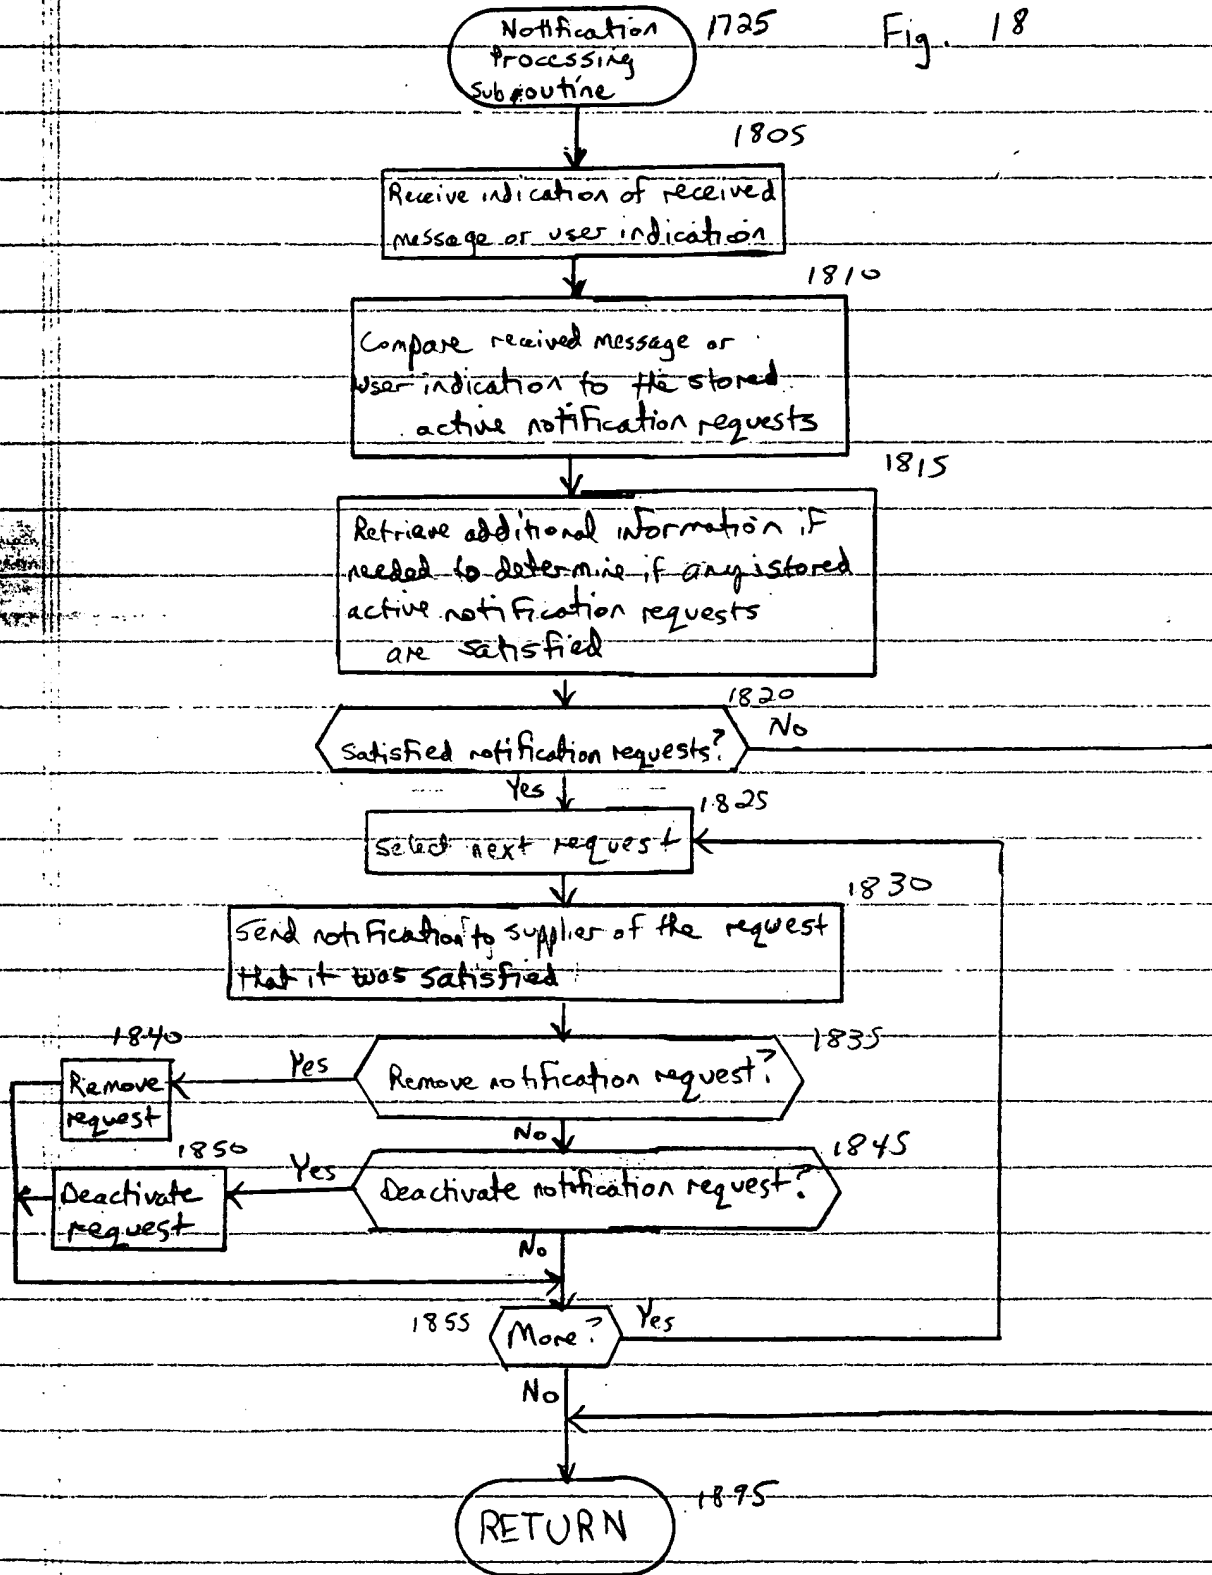 Notification 1725 Fig. 18
Processing
Subroutine
1805
Receive indication of received
message or user indication
1810
Compare received message or
user indication to the stored
active notification requests
1815
Retrieve additional information if
needed to determine if any stored
active notification requests
are satisfied
1820
Satisfied notification requests? No
Yes
1825
Select next request
1830
Send notification to supplier of the request
that it was satisfied
1840 1835
Remove Yes Remove notification request?
request
No
1850 1845
Deactivate Yes Deactivate notification request?
request
No
1855 More? Yes
No
RETURN 1895